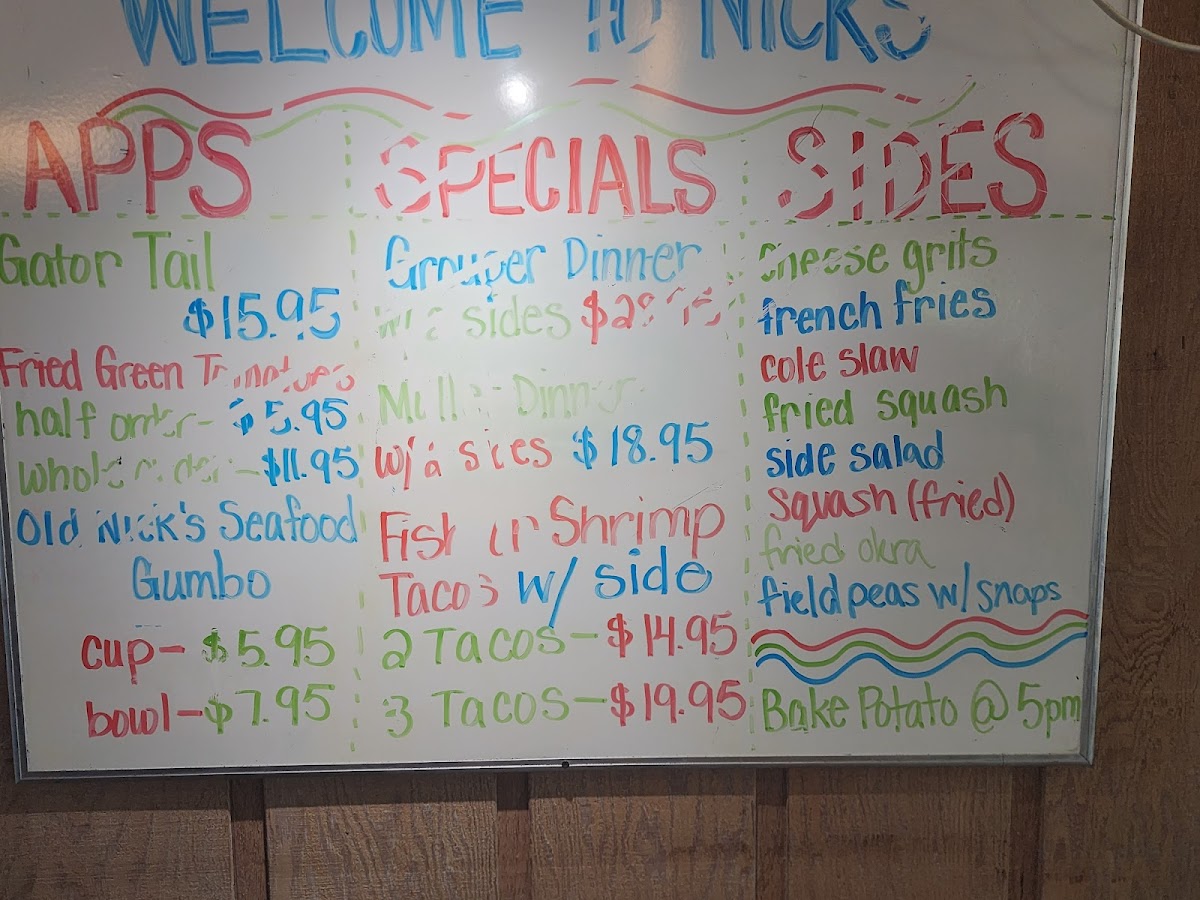 WELCOME TO NICKS
APPS
Gator Tail
$15.95
Fried Green Tomatoes
half order- $5.95
whole order-$11.95
Old Nick's Seafood
Gumbo
cup- $5.95
bowl-$7.95
SPECIALS
Grouper Dinner
sides
Mullet Dinner
w/2 sides $18.95
Fish or Shrimp
Tacos w/ side
2 Tacos-$14.95
3 Tacos-$19.95
SIDES
cheese grits
french fries
cole slaw
fried squash
side salad
squash (fried)
fried okra
field peas w/snaps
Bake Potato @ 5pm